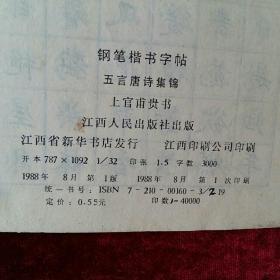 钢笔楷书字帖
五言唐诗集锦
上官甫贵书
江西人民出版社出版
江西省新华书店发行 江西印刷公司印刷
开本 787×1092 1/32 印张 1.5 字数 3000
1988年 8月 第1版 1988年 8月 第1次印刷
统一书号：ISBN 7-210-00160-3/Z19
定价：0.55元 印数1-40000